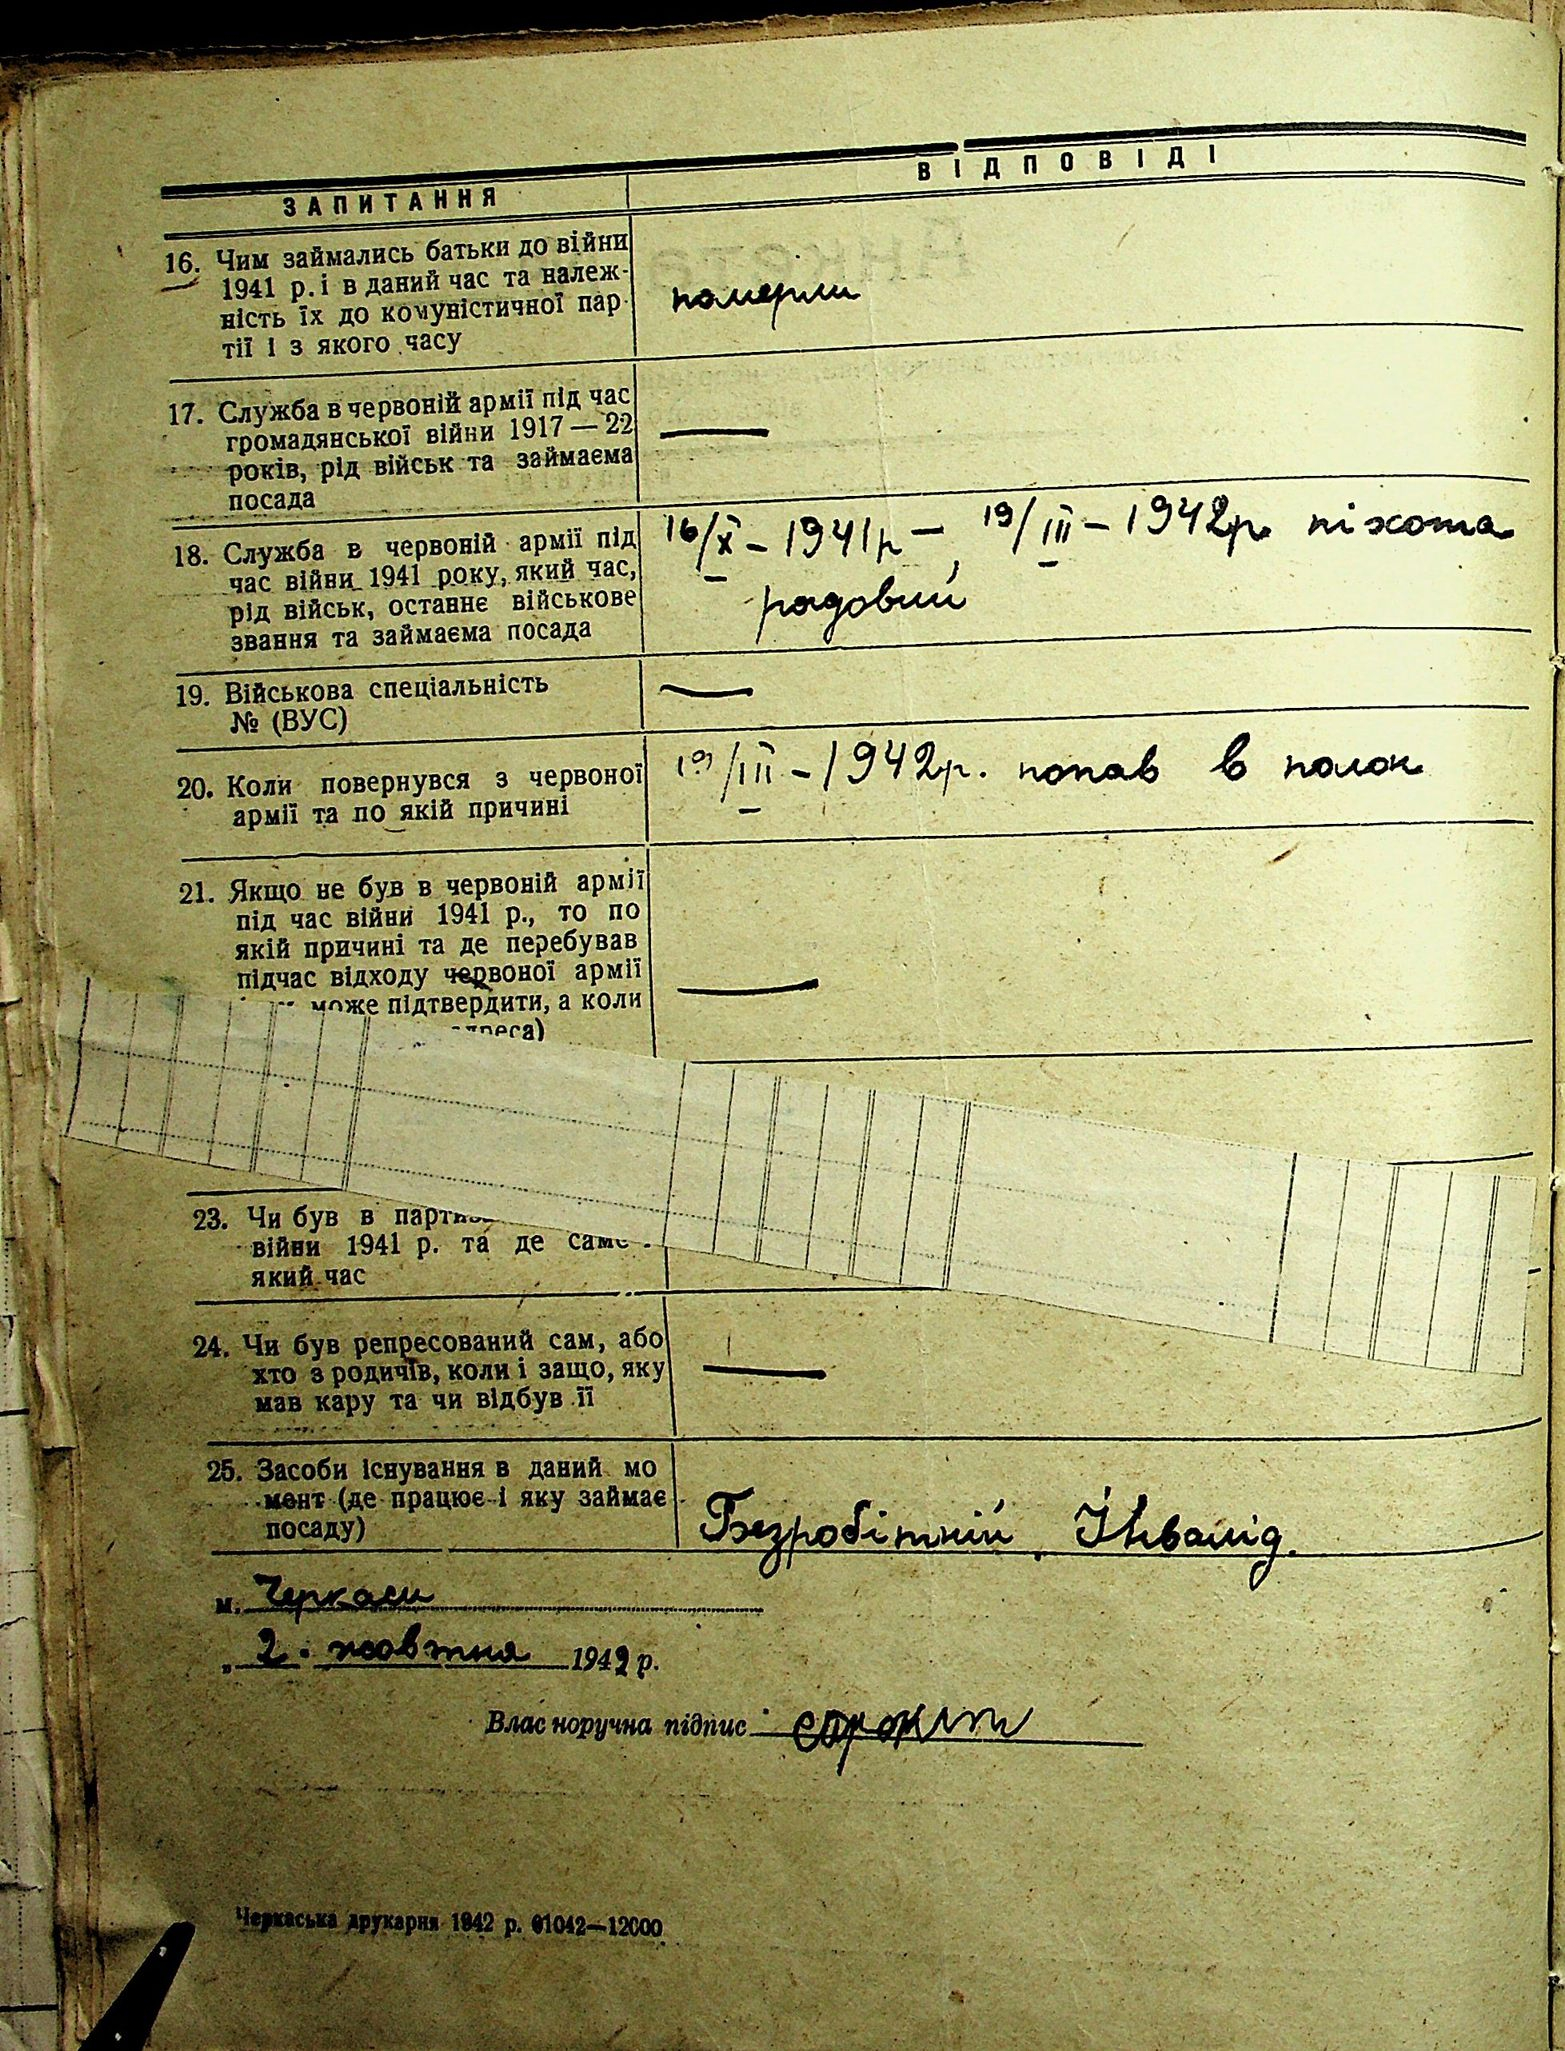 ЗАПИТАННЯ
ВІДПОВІДІ
16. Чим займались батьки до війни
1941 р. і в даний час та належ-
ність їх до комуністичної пар-
тії і з якого часу
померли
17. Служба в червоній армії під час
громадянської війни 1917 — 22
років, рід військ та займаєма
посада
—
18. Служба в червоній армії під
час війни 1941 року, який час,
рід військ, останнє військове
звання та займаєма посада
16/X – 1941р – 19/III – 1942р. піхота
рядовий
19. Військова спеціальність
№ (ВУС)
—
20. Коли повернувся з червоної
армії та по якій причині
19/III – 1942р. попав в полон
21. Якщо не був в червоній армії
під час війни 1941 р., то по
якій причині та де перебував
підчас відходу червоної армії
може підтвердити, а коли
—
23. Чи був в
війни 1941 р. та де саме
який час
24. Чи був репресований сам, або
хто з родичів, коли і защо, яку
мав кару та чи відбув її
—
25. Засоби існування в даний мо
мент (де працює і яку займає
посаду)
Безробітній, Інвалід.
м. Черкаси
„ 2. жовтня 1942 р.
Власноручна підпис
Черкаська друкарня 1942 р. 01042—12000